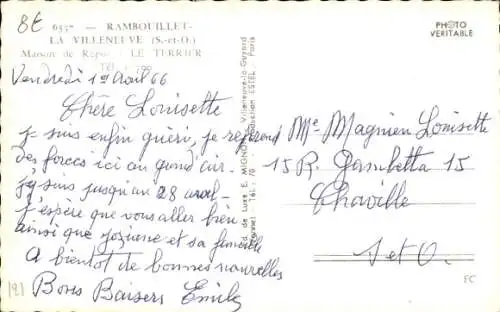 8€
9537 - RAMBOUILLET-
LA VILLENEUVE (S.-et-O.)
Maison de Repos LE TERRIER
Tél.
PHOTO
VERITABLE
Vendredi 1er Avril 66
Chère Louisette
je suis enfin guéri, je reprend
des forces ici au grand air.
j'y suis jusqu'au 28 avril-
j'espère que vous aller bien
ainsi que Josiane et sa famille
A bientôt de bonnes nouvelles
Bons Baisers Emily
Me Magnien Louisette
15 R. Gambetta 15
Chaville
S et O.
de Luxe E. MIGNON Villeneuve-la-Guyard
ESTEL - Paris
121
FC